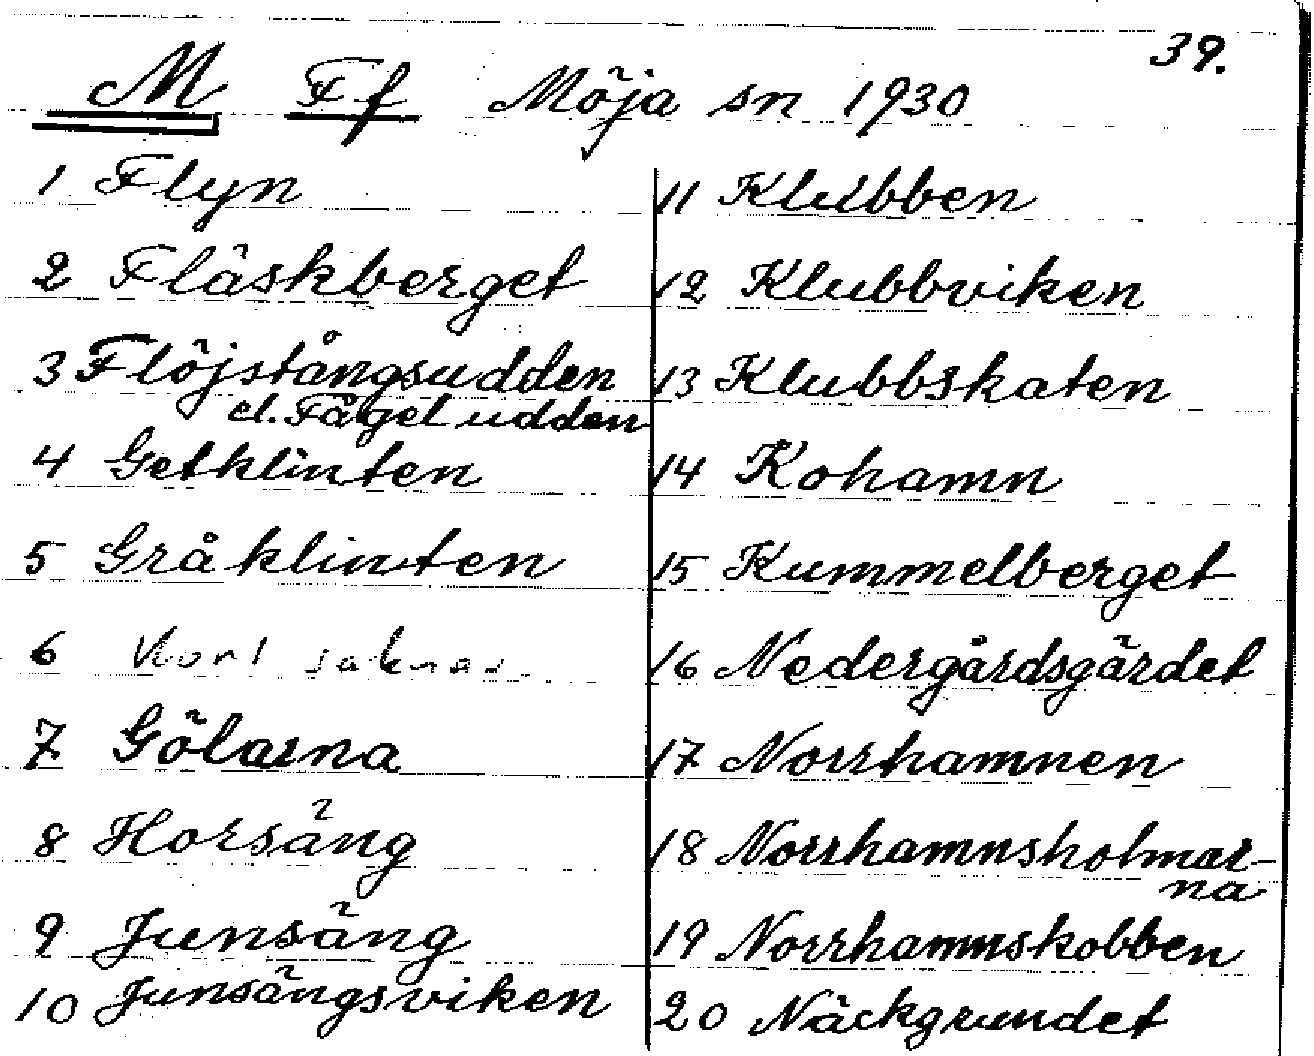 39.
M Ff Möja sn 1930
1 Flyn
2 Fläskberget
3 Flöjstångsudden
el. Fågeludden
4 Getklinten
5 Gråklinten
6 Kort saknas.
7 Gölarna
8 Horsäng
9 Junsäng
10 Junsängsviken
11 Klubben
12 Klubbviken
13 Klubbskaten
14 Kohamn
15 Kummelberget
16 Nedergårdsgärdet
17 Norrhamnen
18 Norrhamnsholmar-
na
19 Norrhamnskobben
20 Näckgrundet